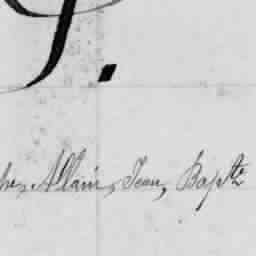 he, Allain, Jean, Bapte